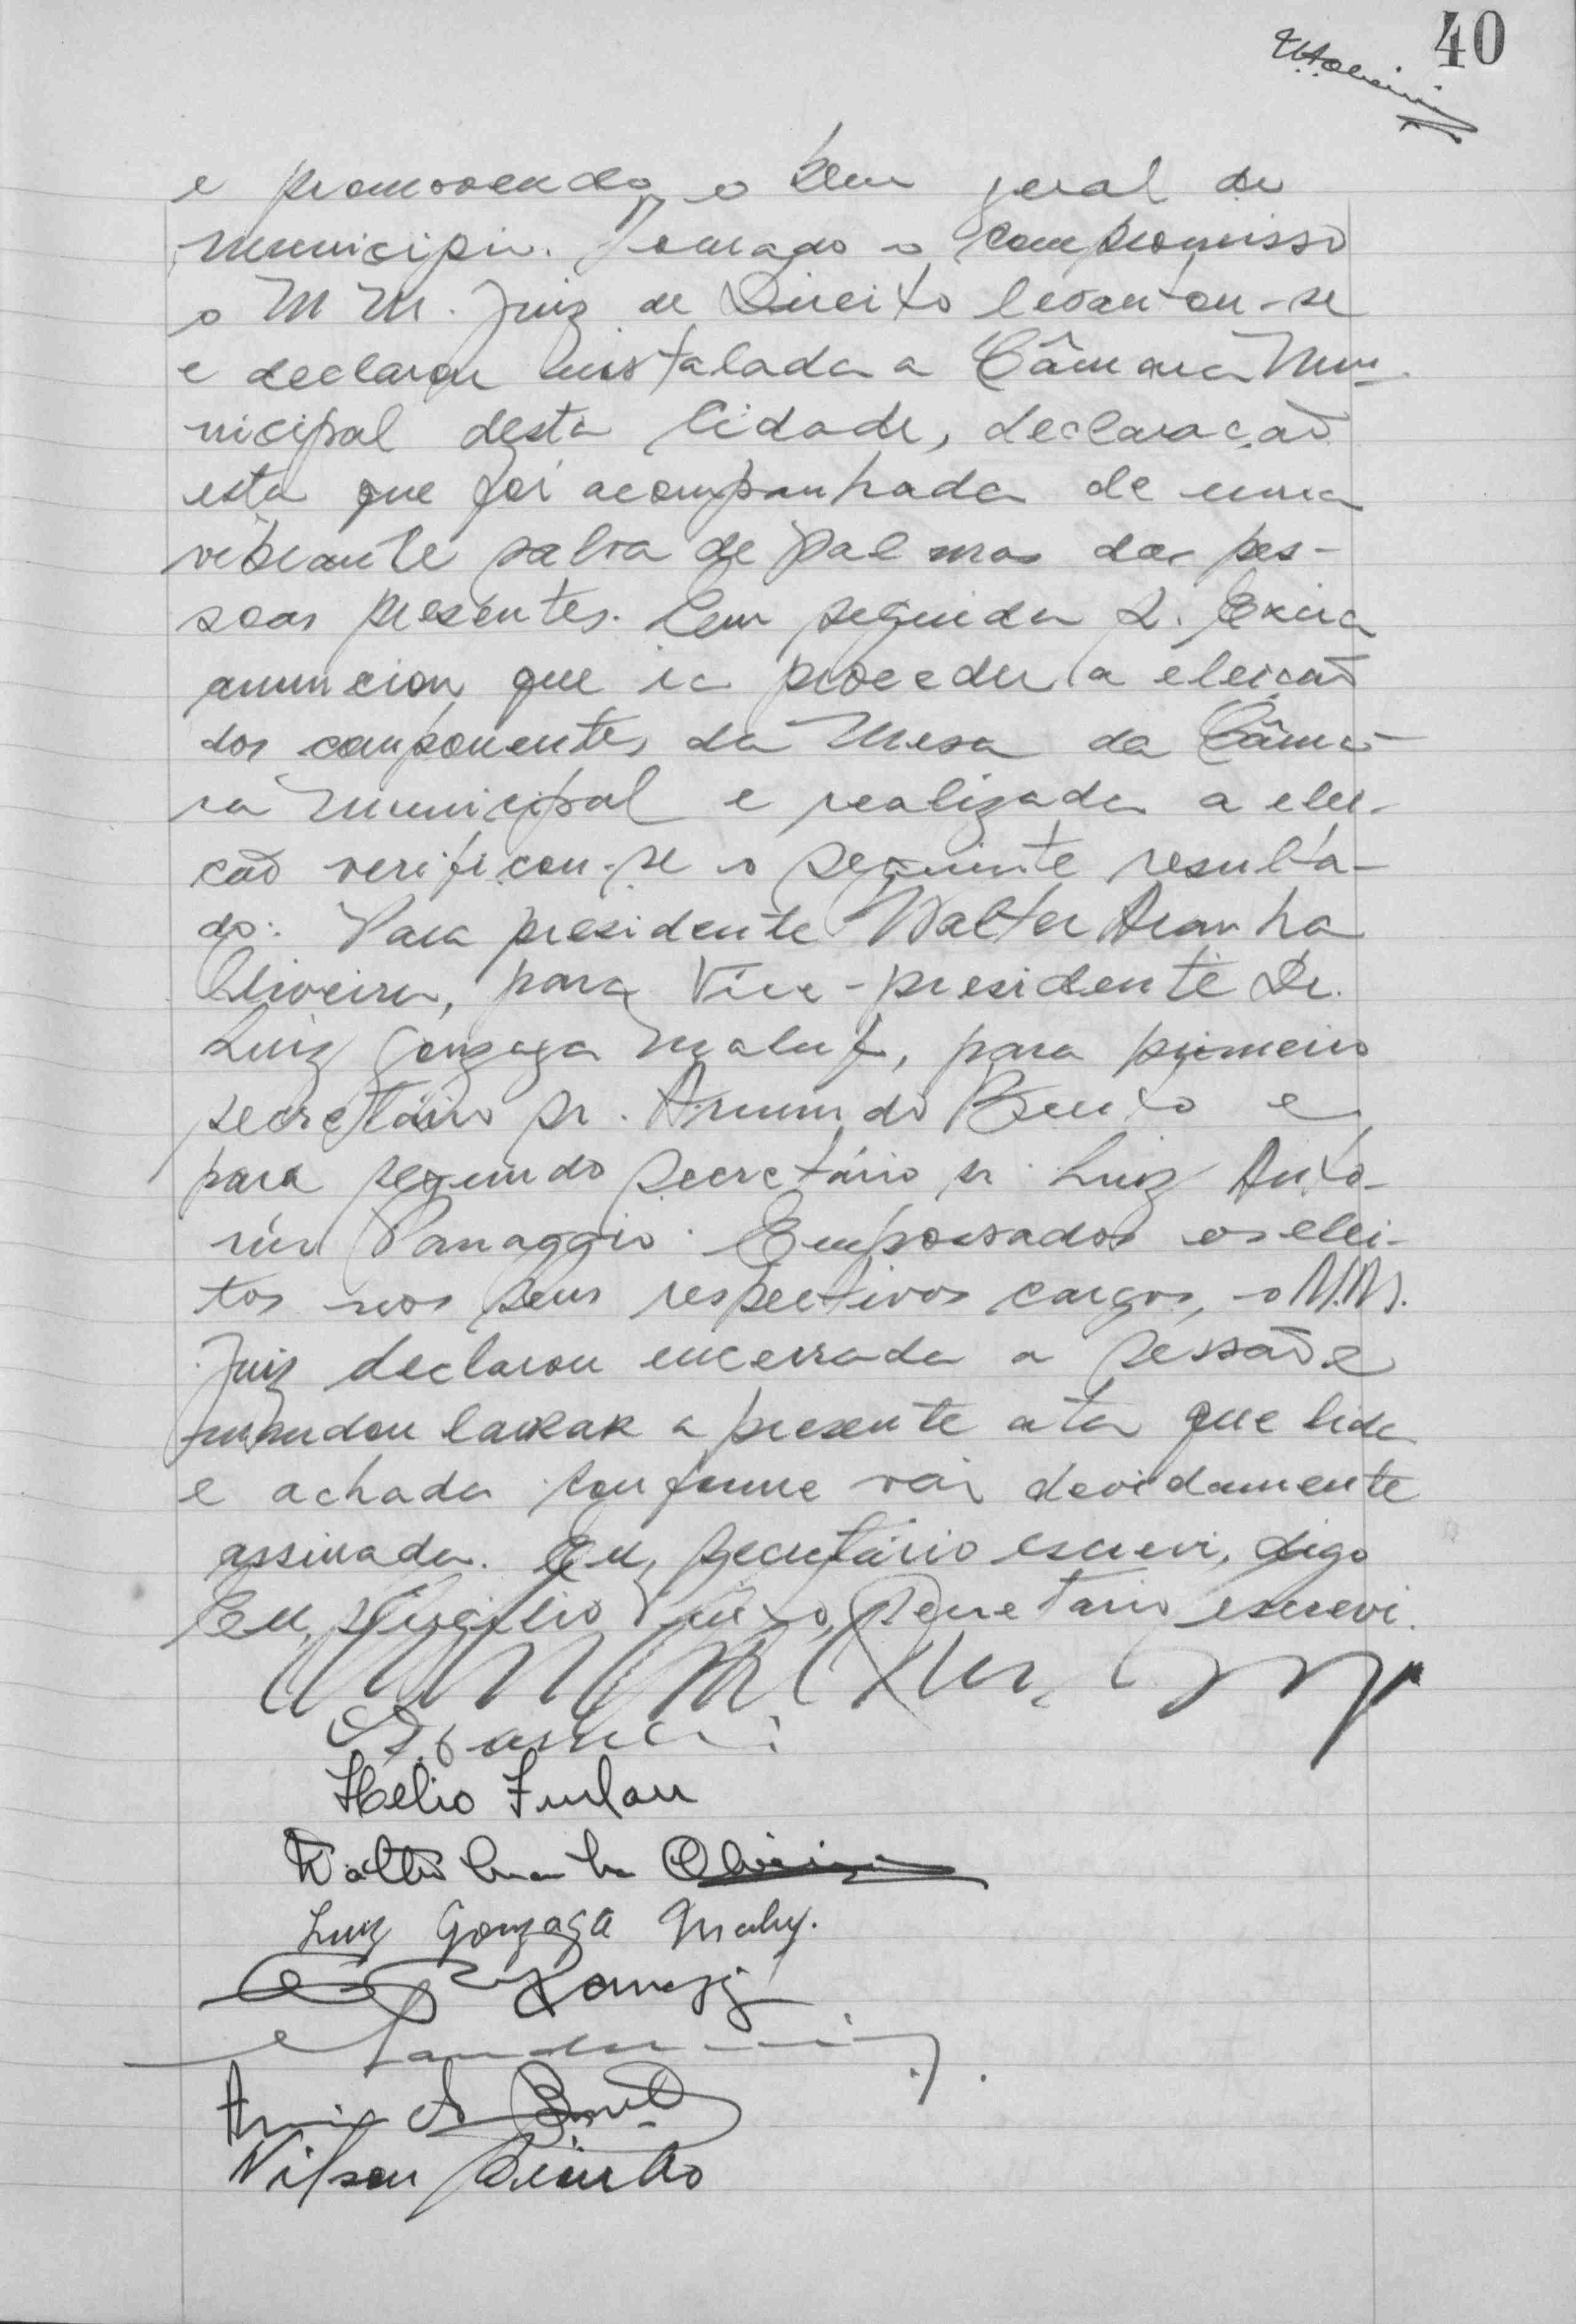 40
e promovendo o bem geral do
municipio. Tomado o compromisso
o M M. Juiz de Direito levantou-se
e declarou instalada a Câmara Mu-
nicipal desta Cidade, declaração
esta que foi acompanhada de uma
vibrante salva de palmas das pes-
soas presentes. Em seguida S. Excia
anunciou que ia proceder a eleição
dos componentes da Mesa da Câma-
ra Municipal e realizada a elei-
ção verificou-se o seguinte resulta-
do: Para presidente Walter Aranha
Oliveira, para Vice-presidente Dr.
Luiz Gonzaga Maluf, para primeiro
secretário sr. Armindo Bento e
para segundo secretário sr. Luiz Antô-
nio Panaggio. Empossados os elei-
tos nos seus respectivos cargos, o M.M.
Juiz declarou encerrada a sessão e
mandou lavrar a presente ata que lida
e achada conforme vai devidamente
assinada. Eu, secretário escrevi, digo
Eu, Secretario escrevi.
Helio Furlan
Walter Aranha Oliveira
Luiz Gonzaga Maluf.
Nilson